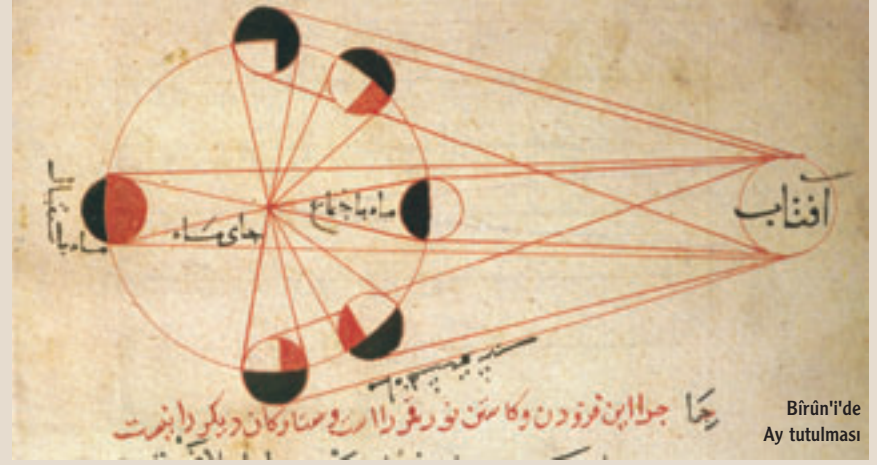 آفتاب
ماه باجتماع
جای ماه
ماه باستقبال
چرا این فزودن و کاستن نور قمر راست و ستارگان دیگر را نیست
Bîrûn'i'de
Ay tutulması